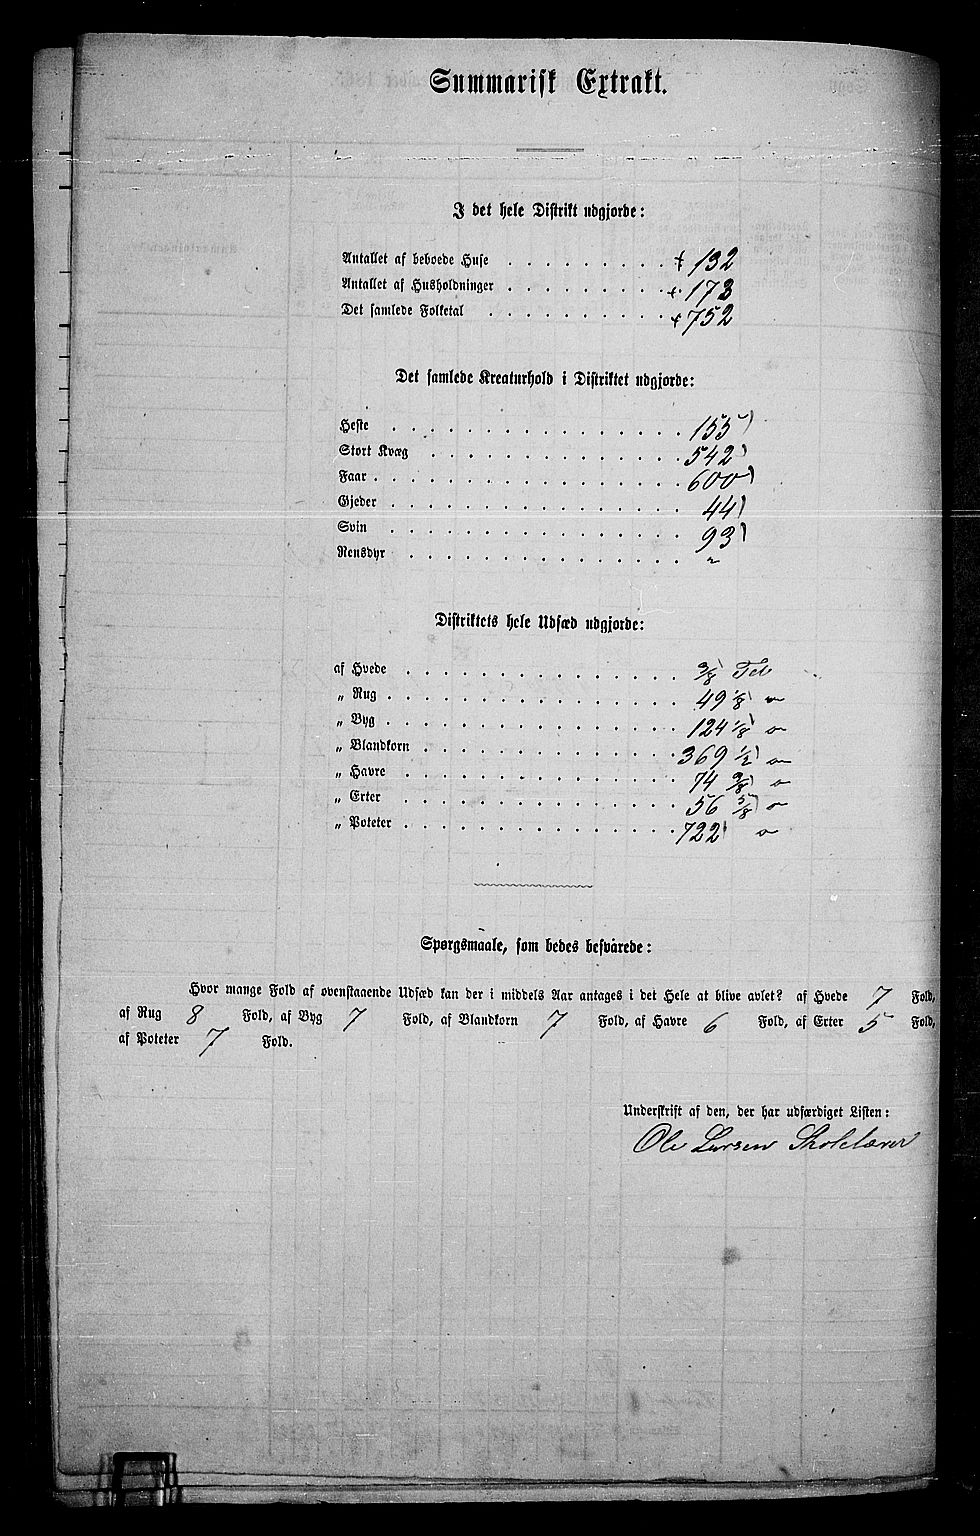 Summarisk Extrakt.
I det hele Distrikt udgjorde:
Antallet af beboede Huse . . . . . . . . . 132
Antallet af Husholdninger . . . . . . . . . 173
Det samlede Folketal . . . . . . . . . . 752
Det samlede Kreaturhold i Distriktet udgjorde:
Heste . . . . . . . . . . . . . . . 155
Stort Kvæg . . . . . . . . . . . . . 542
Faar . . . . . . . . . . . . . . . . 600
Gjeder . . . . . . . . . . . . . . . 44
Svin . . . . . . . . . . . . . . . 93
Rensdyr . . . . . . . . . . . . . . "
Distriktets hele Udsæd udgjorde:
af Hvede . . . . . . . . . . . . . . . 3/8 Td
„ Rug . . . . . . . . . . . . . . . . 49 1/8 "
„ Byg . . . . . . . . . . . . . . . . 124 1/8 "
„ Blandkorn . . . . . . . . . . . . . . 369 1/2 "
„ Havre . . . . . . . . . . . . . . . 74 3/8 "
„ Erter . . . . . . . . . . . . . . . 56 5/8 "
„ Poteter . . . . . . . . . . . . . . . 722 "
Spørgsmaale, som bedes besvarede:
Hvor mange Fold af ovenstaaende Udsæd kan der i middels Aar antages i det Hele at blive avlet? af Hvede 7 Fold,
af Rug 8 Fold, af Byg 7 Fold, af Blandkorn 7 Fold, af Havre 6 Fold, af Erter 5 Fold,
af Poteter 7 Fold.
Underskrift af den, der har udfærdiget Listen:
Ole Larsen Skolelærer